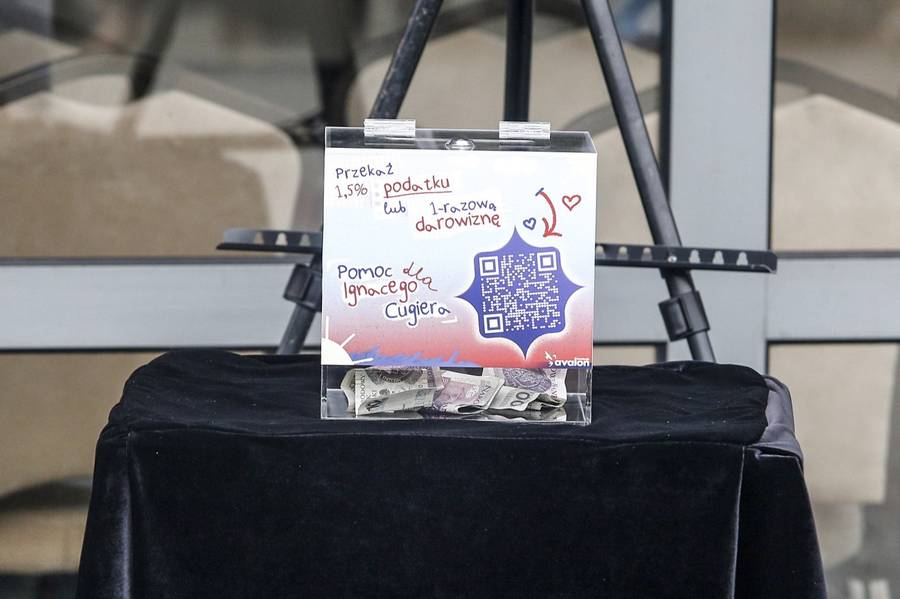 Przekaż
1,5% podatku
lub 1-razową
darowiznę
Pomoc dla
Ignacego
Cugiera
avalon